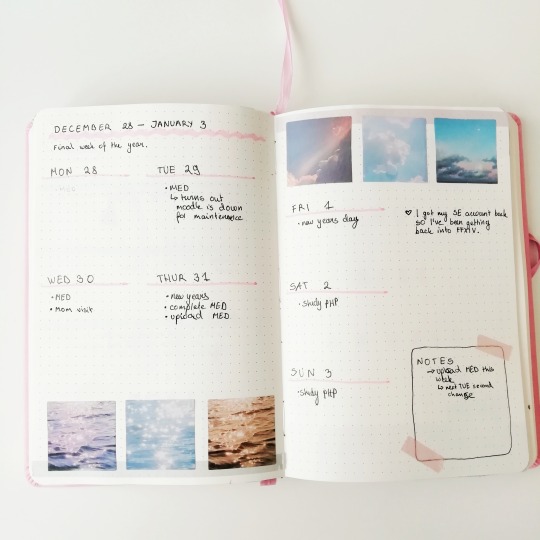 DECEMBER 28 - JANUARY 3
Final week of the year.
MON 28
• MED
TUE 29
• MED
↳ turns out
moodle is down
for maintenance
WED 30
• MED
• Mom visit
THUR 31
• new years
• complete MED
• upload MED
FRI 1
• new years day
♡ I got my SE account back
so I've been getting
back into FFXIV.
SAT 2
• study PHP
SUN 3
• study PHP
NOTES
→ upload MED this
week
↳ next TUE second
change